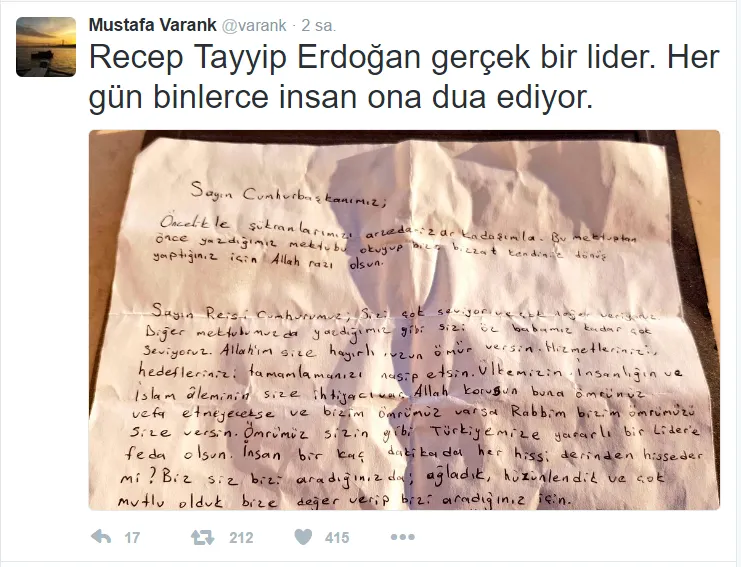 Mustafa Varank @varank · 2 sa.
Recep Tayyip Erdoğan gerçek bir lider. Her
gün binlerce insan ona dua ediyor.
Sayın Cumhurbaşkanımız;
Öncelikle şükranlarımızı arzederiz arkadaşımla. Bu mektuptan
önce yazdığımız mektubu okuyup bize bizzat kendiniz dönüş
yaptığınız için Allah razı olsun.
Sayın Reisi Cumhurumuz; Sizi çok seviyor ve çok değer veriyoruz
Diğer mektubumuzda yazdığımız gibi sizi öz babamız kadar çok
Seviyoruz. Allah'ım size hayırlı uzun ömür versin. Hizmetlerinizi,
hedeflerinizi tamamlamanızı nasip etsin. Ülkemizin, İnsanlığın ve
İslam âleminin size ihtiyacı var. Allah korusun buna ömrünüz
vefa etmeyecekse ve bizim ömrümüz varsa Rabbim bizim ömrümüzü
Size versin. Ömrümüz sizin gibi Türkiyemize yararlı bir Lider'e
feda olsun. İnsan bir kaç dakikada her hissi derinden hisseder
mi? Biz siz bizi aradığınızda; ağladık, hüzünlendik ve çok
mutlu olduk bize değer verip bizi aradığınız için.
17 212 415